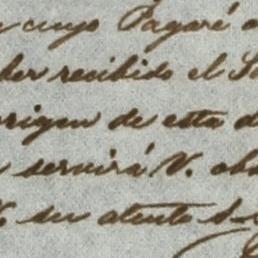 cuyo Pagaré
recibido el
origen de esta
servirá V.
su atento